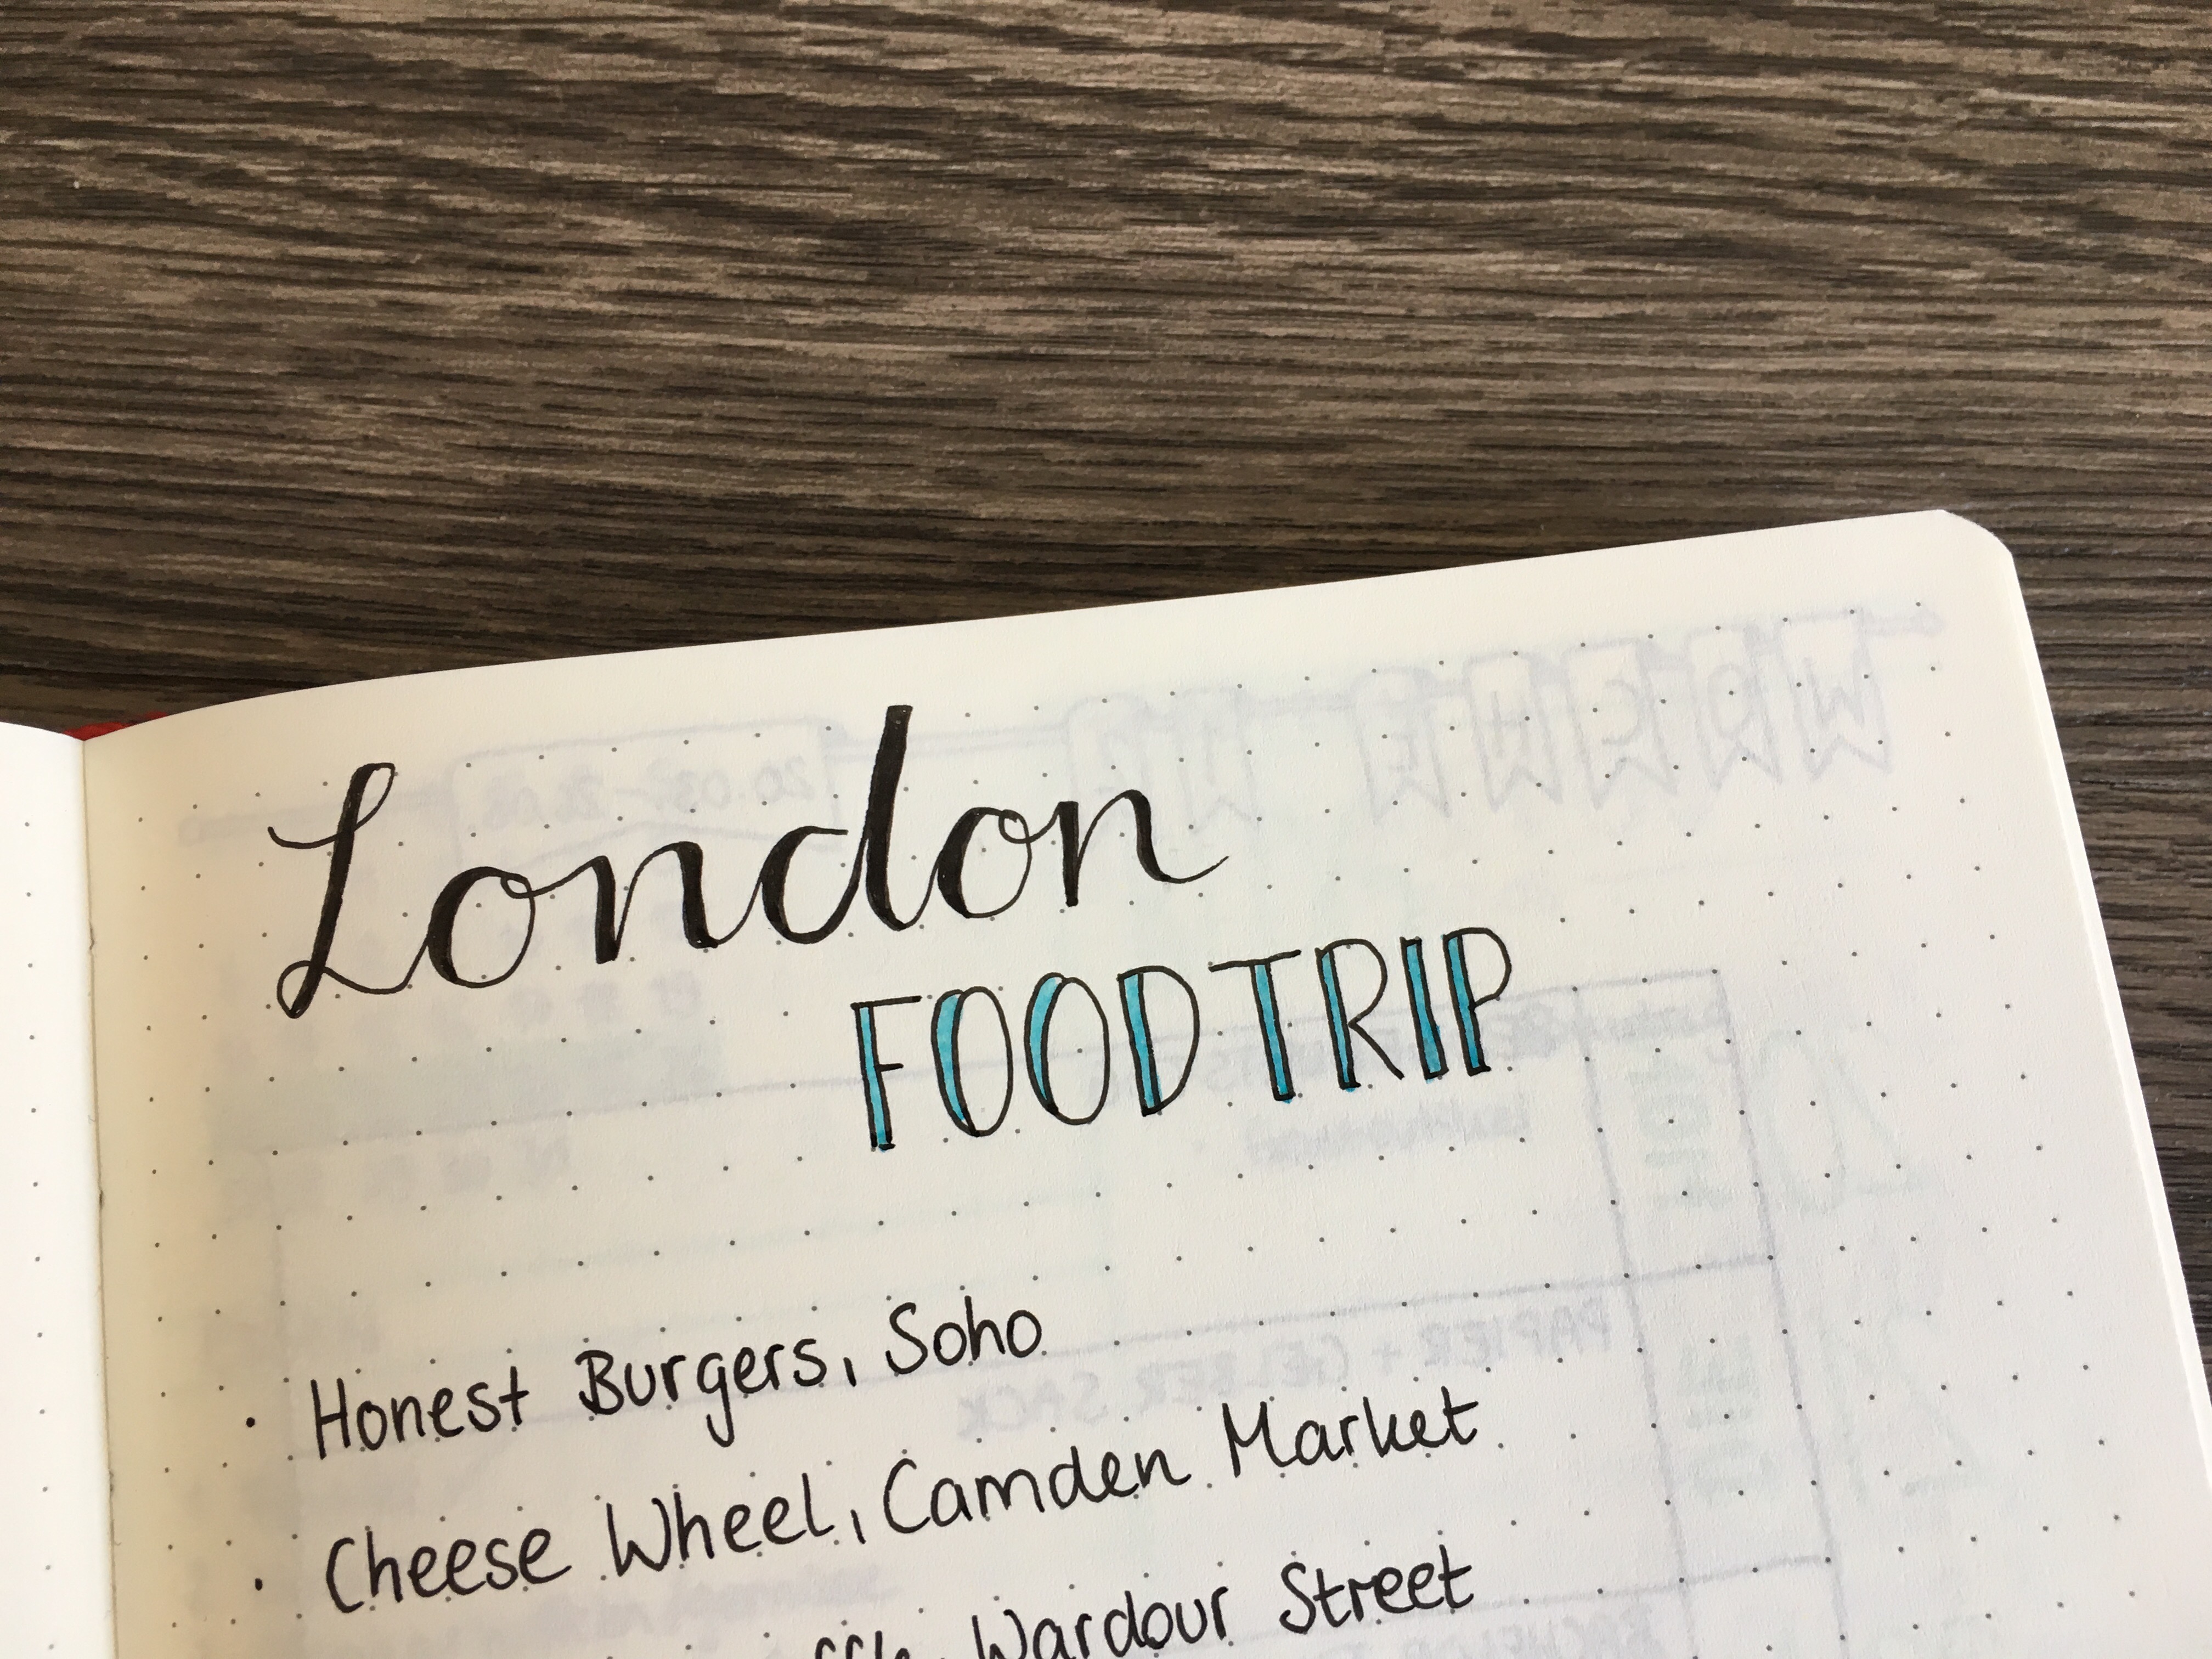 London
FOOD TRIP
· Honest Burgers, Soho
· Cheese Wheel, Camden Market
Wardour Street